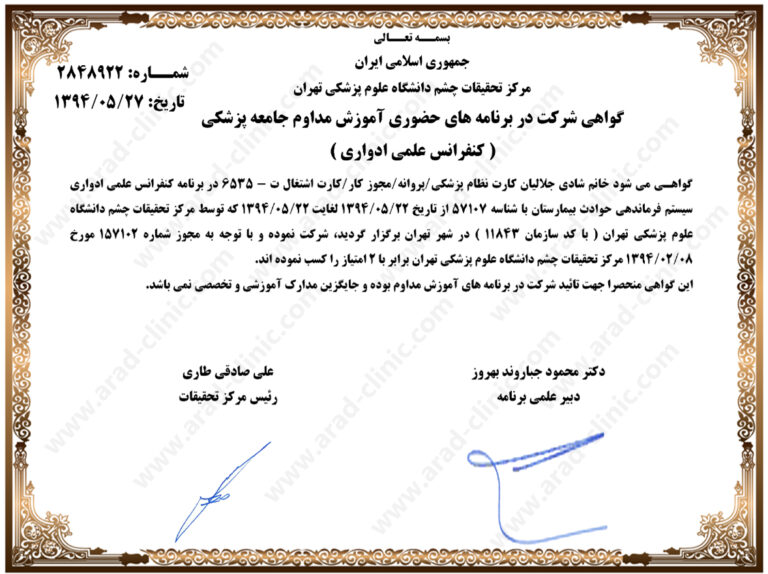 بسمـــه تعـــالی
جمهوری اسلامی ایران
شمـــاره: ۲۸۴۸۹۲۲
مرکز تحقیقات چشم دانشگاه علوم پزشکی تهران
تاریخ: ۱۳۹۴/۰۵/۲۷
گواهی شرکت در برنامه های حضوری آموزش مداوم جامعه پزشکی
( کنفرانس علمی ادواری )
گواهــی می شود خانم شادی جلالیان کارت نظام پزشکی/پروانه/مجوز کار/کارت اشتغال ت - ۶۵۳۵ در برنامه کنفرانس علمی ادواری
سیستم فرماندهی حوادث بیمارستان با شناسه ۵۷۱۰۷ از تاریخ ۱۳۹۴/۰۵/۲۲ لغایت ۱۳۹۴/۰۵/۲۲ که توسط مرکز تحقیقات چشم دانشگاه
علوم پزشکی تهران ( با کد سازمان ۱۱۸۴۳ ) در شهر تهران برگزار گردید، شرکت نموده و با توجه به مجوز شماره ۱۵۷۱۰۲ مورخ
۱۳۹۴/۰۲/۰۸ مرکز تحقیقات چشم دانشگاه علوم پزشکی تهران برابر با ۲ امتیاز را کسب نموده اند.
این گواهی منحصرا جهت تائید شرکت در برنامه های آموزش مداوم بوده و جایگزین مدارک آموزشی و تخصصی نمی باشد.
دکتر محمود جباروند بهروز
دبیر علمی برنامه
علی صادقی طاری
رئیس مرکز تحقیقات
www.arad-clinic.com